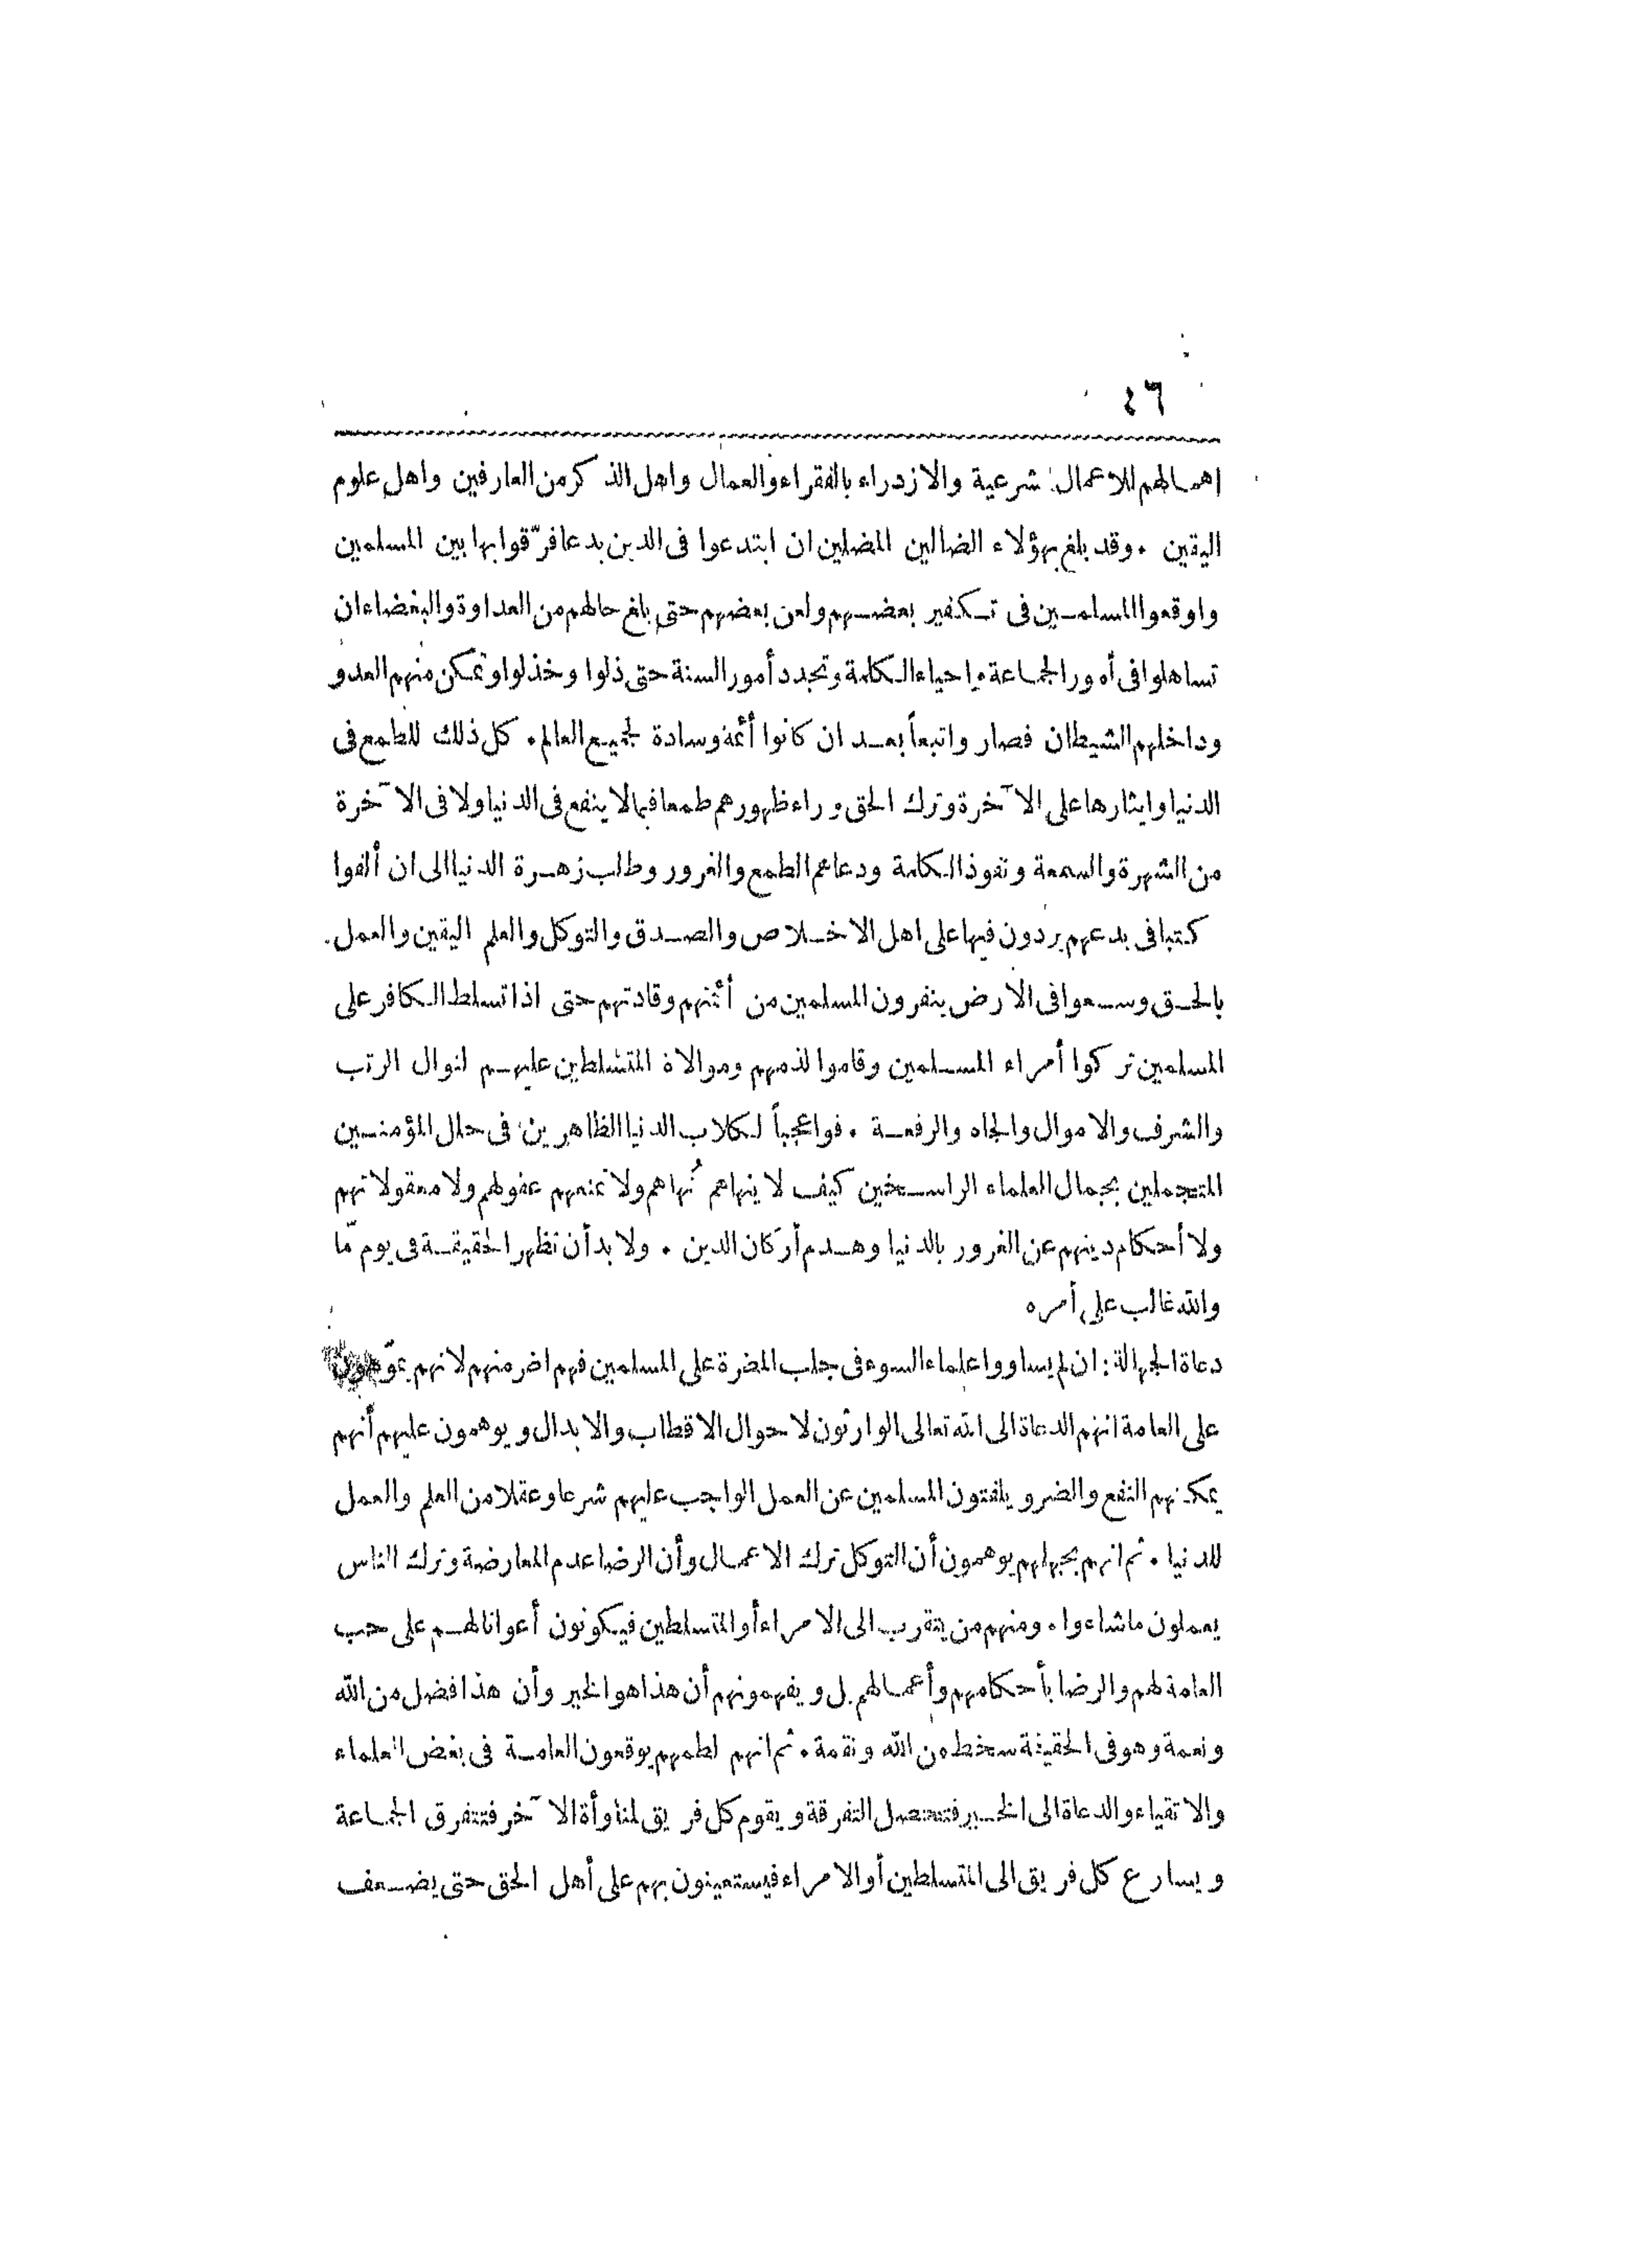 ٤٦
اهمالهم للاعمال الشرعية والازدراء بالفقراء والعمال واهل الذكر من العارفين واهل علوم
اليقين . وقد بلغ بهؤلاء الضالين المضلين ان ابتدعوا فى الدين بدعا فرّقوا بها بين المسلمين
واوقعوا المسلمين فى تكفير بعضهم ولعن بعضهم حتى بلغ حالهم من العداوة والبغضاء ان
تساهلوا فى أمور الجماعة وإحياء الكلمة وتجدد أمور السنة حتى ذلوا وخذلوا وتمكن منهم العدو
وداخلهم الشيطان فصاروا تبعاً بعد ان كانوا أئمة وسادة لجميع العالم . كل ذلك للطمع فى
الدنيا وايثارها على الآخرة وترك الحق وراء ظهورهم طمعا فيما لا ينفع فى الدنيا ولا فى الآخرة
من الشهرة والسمعة ونفوذ الكلمة ودعاهم الطمع والغرور وطلب زهرة الدنيا الى ان ألفوا
كتبا فى بدعهم يردون فيها على اهل الاخلاص والصدق والتوكل والعلم اليقين والعمل
بالحق وسعوا فى الارض ينفرون المسلمين من أئمتهم وقادتهم حتى اذا تسلط الكافر على
المسلمين تركوا أمراء المسلمين وقاموا لذمهم وموالاة المتسلطين عليهم لنوال الرتب
والشرف والاموال والجاه والرفعة . فواعجباً لكلاب الدنيا الظاهرين فى حلل المؤمنين
المتجملين بجمال العلماء الراسخين كيف لا ينهاهم نُهاهم ولا تمنعهم عقولهم ولا معقولاتهم
ولا أحكام دينهم عن الغرور بالدنيا وهدم أركان الدين . ولا بد أن تظهر الحقيقة فى يوم مّا
والله غالب على أمره
دعاة الجهالة : ان لم يساووا علماء السوء فى جلب المضرة على المسلمين فهم اضر منهم لانهم يموّهون
على العامة انهم الدعاة الى الله تعالى الوارثون لاحوال الاقطاب والابدال ويوهمون عليهم أنهم
يمكنهم النفع والضر ويلفتون المسلمين عن العمل الواجب عليهم شرعا وعقلا من العلم والعمل
للدنيا . ثم انهم بجهلهم يوهمون أن التوكل ترك الاعمال وأن الرضا عدم المعارضة وترك الناس
يعملون ما شاءوا . ومنهم من يتقرب الى الامراء أو المتسلطين فيكونون أعوانا لهم على حب
العامة لهم والرضا بأحكامهم وأعمالهم بل ويفهمونهم أن هذا هو الخير وأن هذا فضل من الله
ونعمة وهو فى الحقيقة سخط من الله ونقمة . ثم انهم لطمعهم يوقعون العامة فى بغض العلماء
والاتقياء والدعاة الى الخير فتحصل التفرقة ويقوم كل فريق لمناوأة الآخر فتتفرق الجماعة
ويسارع كل فريق الى المتسلطين أو الامراء فيستعينون بهم على أهل الحق حتى يضعف